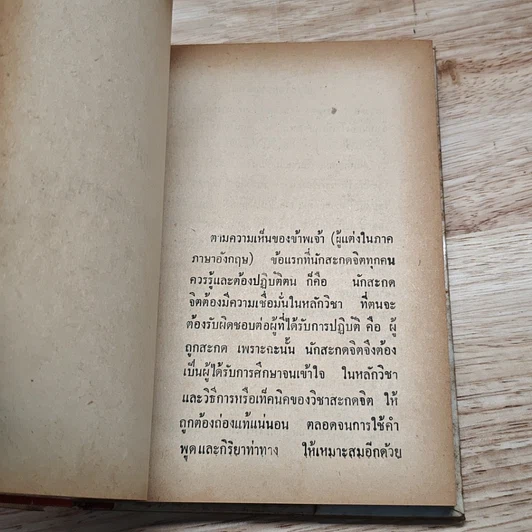 ตามความเห็นของข้าพเจ้า (ผู้แต่งในภาค
ภาษาอังกฤษ) ข้อแรกที่นักสะกดจิตทุกคน
ควรรู้และต้องปฏิบัติตน ก็คือ นักสะกด
จิตต้องมีความเชื่อมั่นในหลักวิชา ที่ตนจะ
ต้องรับผิดชอบต่อผู้ที่ได้รับการปฏิบัติ คือ ผู้
ถูกสะกด เพราะฉะนั้น นักสะกดจิตจึงต้อง
เป็นผู้ได้รับการศึกษาจนเข้าใจ ในหลักวิชา
และวิธีการหรือเท็คนิคของวิชาสะกดจิต ให้
ถูกต้องถ่องแท้แน่นอน ตลอดจนการใช้คำ
พูดและกิริยาท่าทาง ให้เหมาะสมอีกด้วย